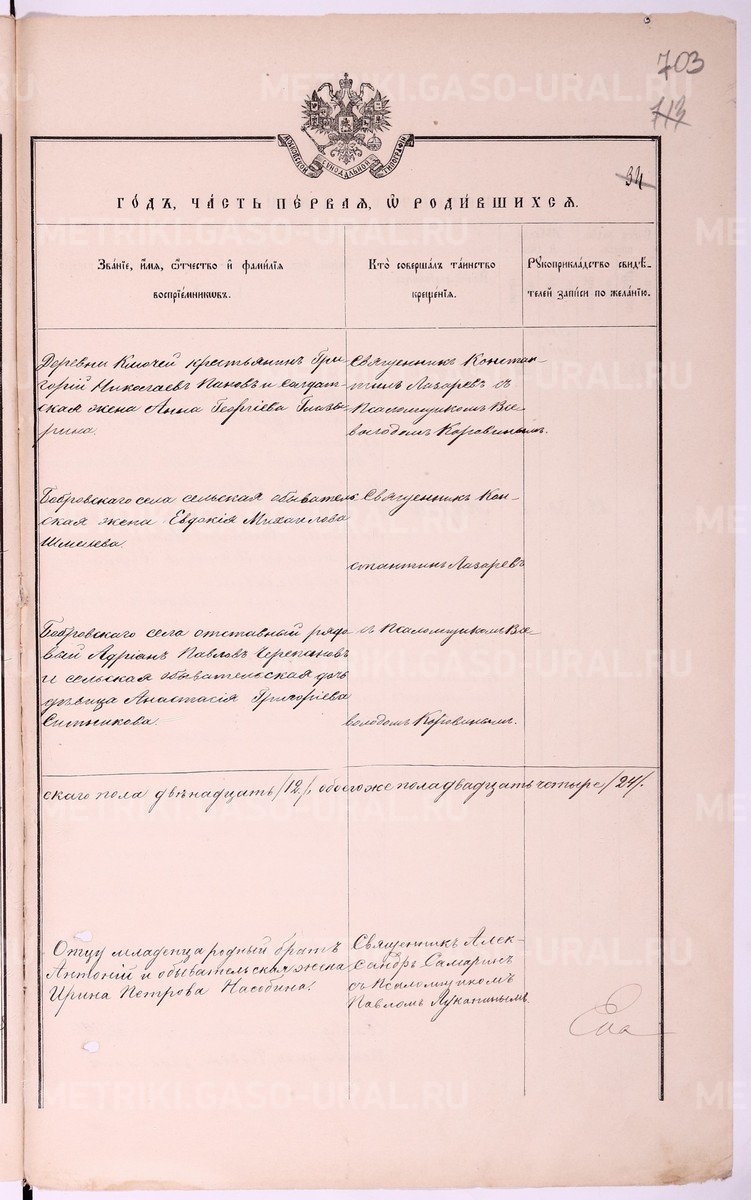 703
713
МОСКОВСКОЙ СѴНОДАЛЬНОЙ ТИПОГРАФІИ
94
ГОДЪ, ЧАСТЬ ПЕРВАЯ, Ѡ РОДИВШИХСЯ.
Званіе, имя, отчество и фамилія
воспріемниковъ.
Кто совершалъ таинство
крещенія.
Рукоприкладство свидѣ-
телей записи по желанію.
Деревни Ключей крестьянинъ Гри-
горій Николаевъ Пановъ и солдат-
ская жена Анна Георгіева Глазы-
рина.
Священникъ Констан-
тинъ Лазаревъ съ
Псаломщикомъ Все-
володомъ Коровинымъ.
Бобровскаго села сельская обыватель-
ская жена Евдокія Михаилова
Шмелева.
Священникъ Кон-
стантинъ Лазаревъ
Бобровскаго села отставный рядо-
вый Адріанъ Павловъ Черепановъ
и сельская обывательская дочь
дѣвица Анастасія Григоріева
Ситникова.
съ Псаломщикомъ Все-
володомъ Коровинымъ.
скаго пола двѣнадцать /12./, обоего же пола двадцать четыре /24/.
Отцу младенца родный братъ
Антоній и обывательская жена
Ирина Петрова Насобина.
Священникъ Алек-
сандръ Самаринъ
съ Псаломщикомъ
Павломъ Лукапинымъ
METRIKI.GASO-URAL.RU